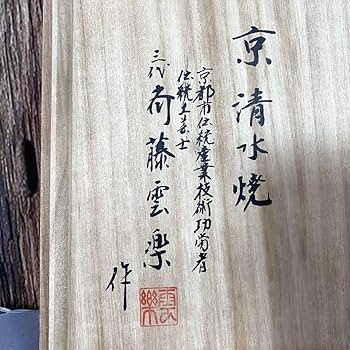 京 清水焼
京都市伝統産業技術功労者
伝統工芸士
三代 斉藤雲楽 作
雲樂